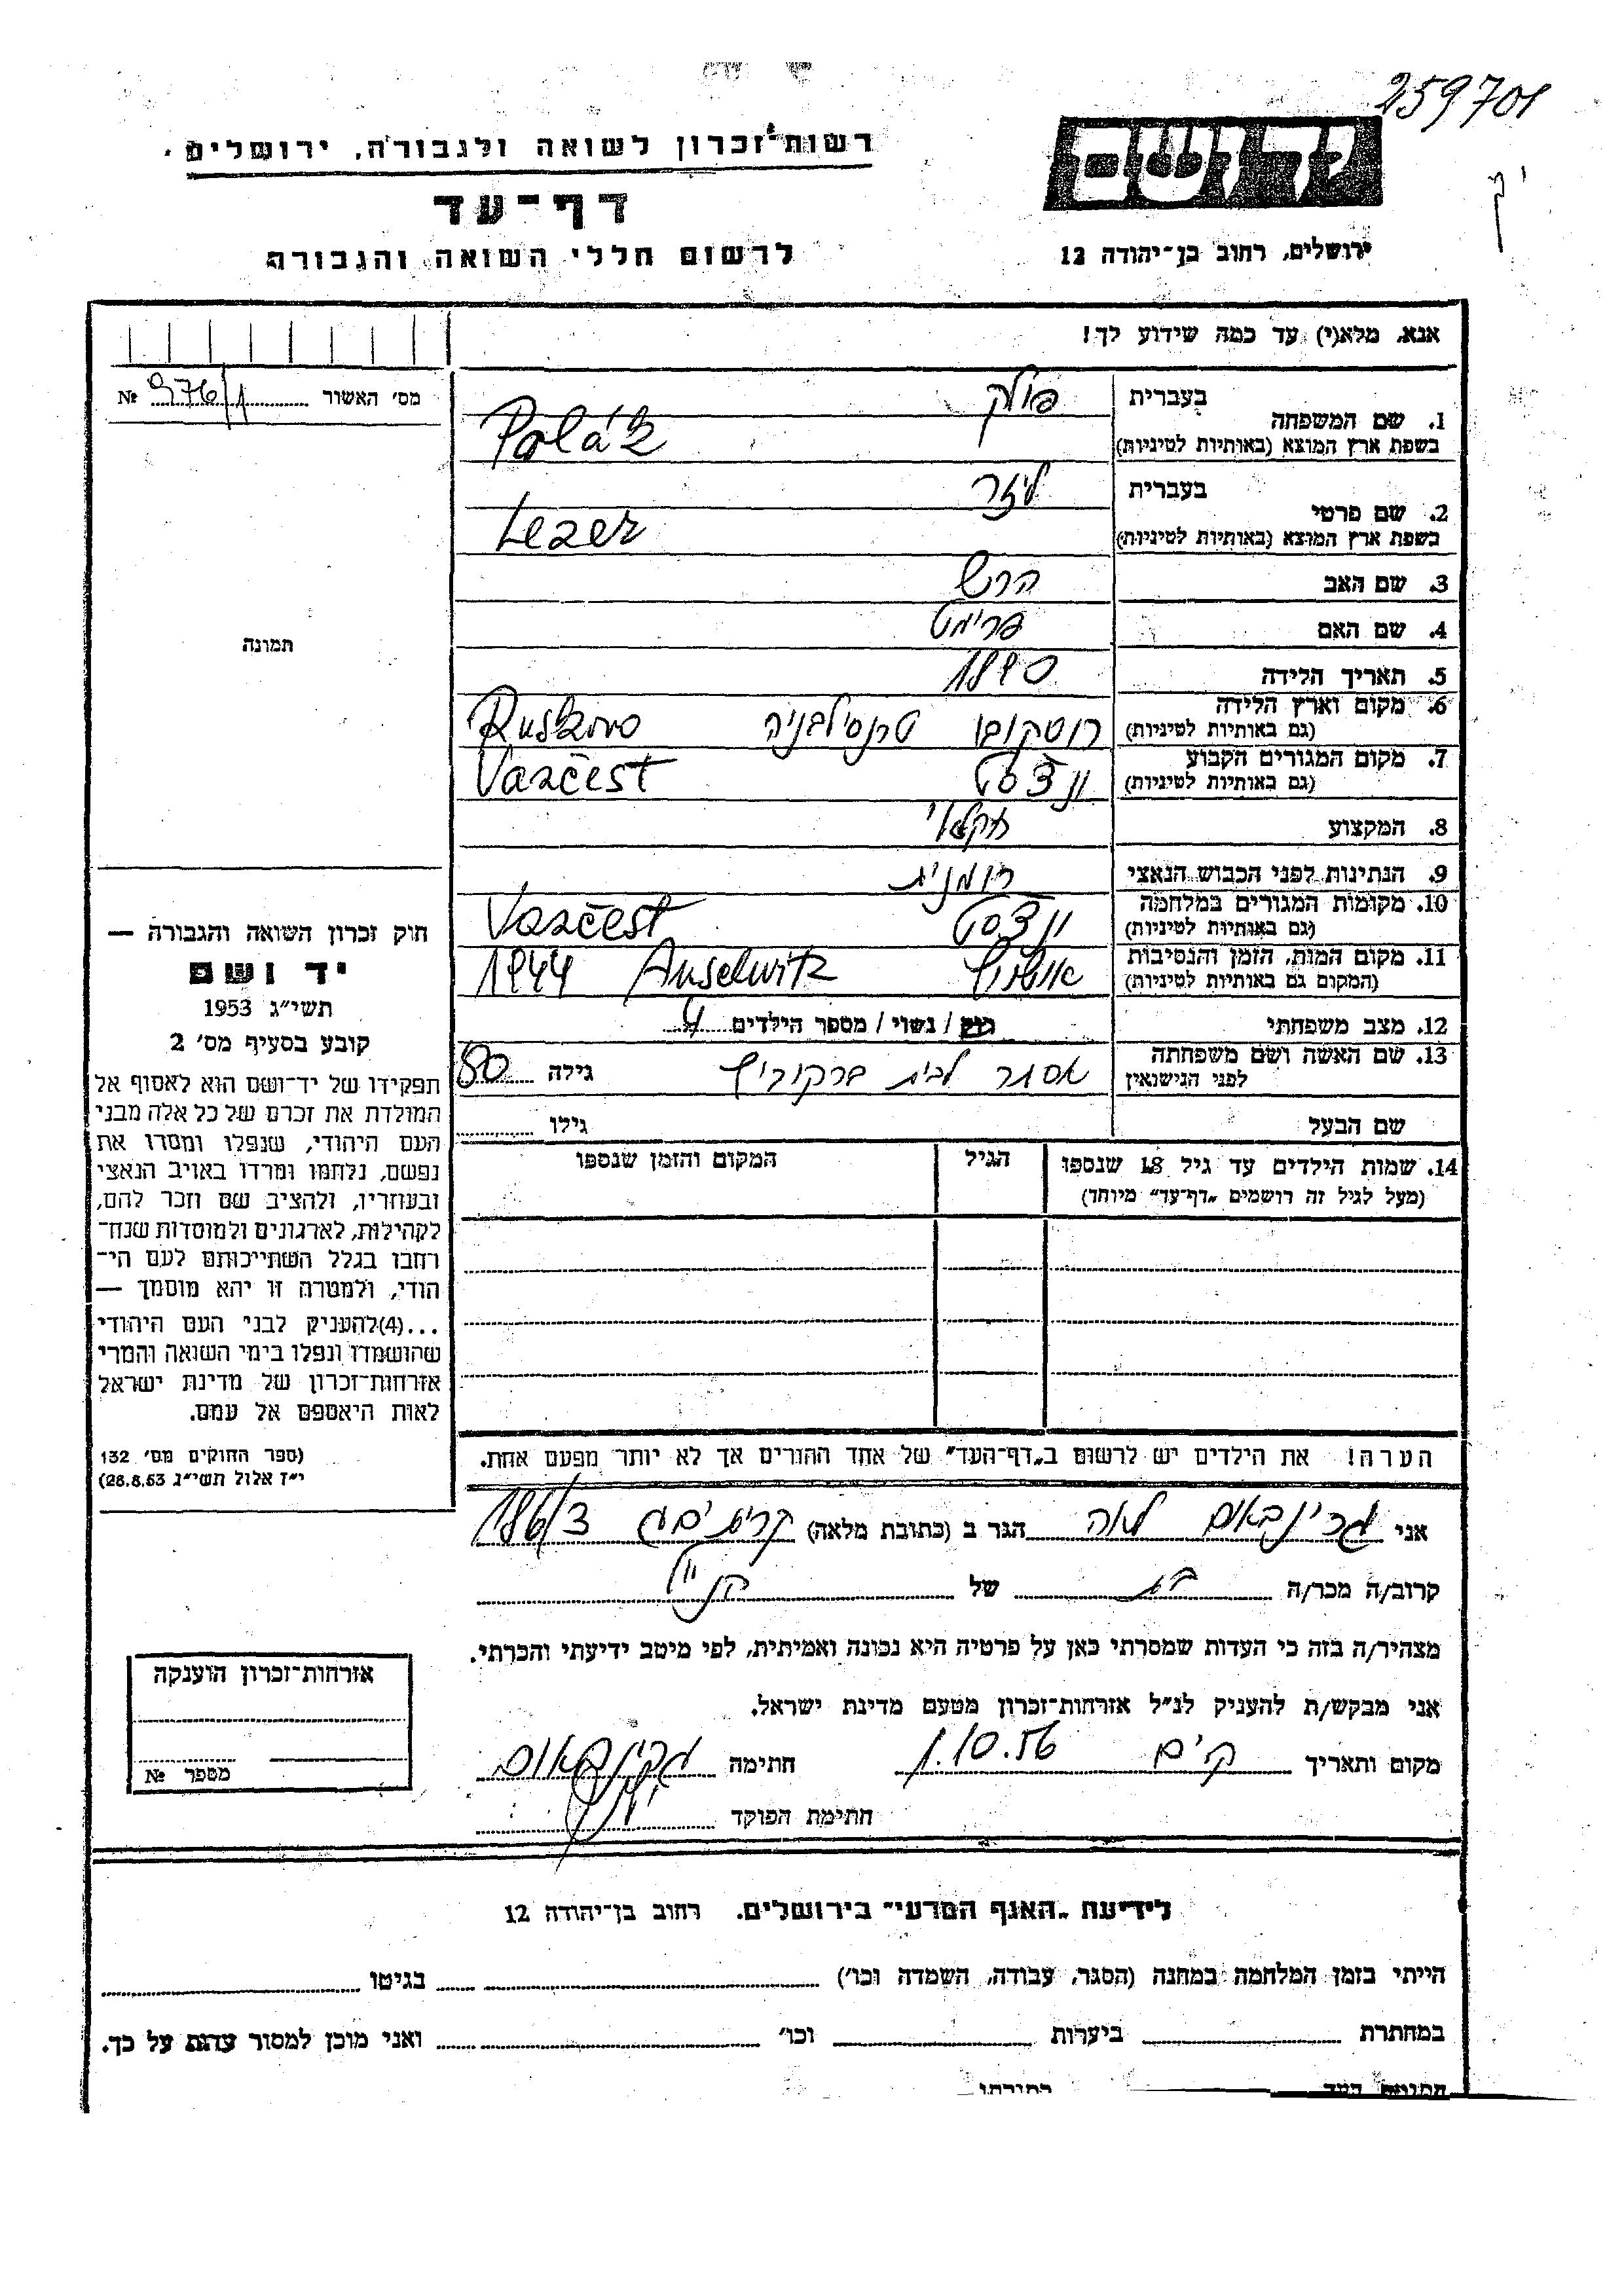 259701
רשות־זכרון לשואה ולגבורה, ירושלים
יד ושם
דף־עד
לרשום חללי השואה והגבורה
ירושלים, רחוב בן־יהודה 12
אנא, מלא(י) עד כמה שידוע לך!
מס׳ האשור 976/1 №
1. שם המשפחה בעברית פולק
בשפת ארץ המוצא (באותיות לטיניות) Polák
2. שם פרטי בעברית ליזר
בשפת ארץ המוצא (באותיות לטיניות) Lezer
3. שם האב הרש
4. שם האם פרימט
5. תאריך הלידה 1890
6. מקום וארץ הלידה (גם באותיות לטיניות) רוסקובו טרנסילבניה Ruskovo
7. מקום המגורים הקבוע (גם באותיות לטיניות) ונצסט Vančest
8. המקצוע חקלאי
9. הנתינות לפני הכבוש הנאצי רומנית
10. מקומות המגורים במלחמה (גם באותיות לטיניות) ונצסט Vančest
11. מקום המות, הזמן והנסיבות (המקום גם באותיות לטיניות) אושויץ Auschwitz 1944
12. מצב משפחתי רוק / נשוי / מספר הילדים 4
13. שם האשה ושם משפחתה לפני הנישואין אסתר לבית ברקוביץ גילה 50
שם הבעל גילו
14. שמות הילדים עד גיל 18 שנספו הגיל המקום והזמן שנספו
(מעל לגיל זה רושמים „דף־עד״ מיוחד)
הערה! את הילדים יש לרשום ב„דף־העד״ של אחד ההורים אך לא יותר מפעם אחת.
תמונה
חוק זכרון השואה והגבורה —
יד ושם
תשי״ג 1953
קובע בסעיף מס׳ 2
תפקידו של יד־ושם הוא לאסוף אל
המולדת את זכרם של כל אלה מבני
העם היהודי, שנפלו ומסרו את
נפשם, נלחמו ומרדו באויב הנאצי
ובעוזריו, ולהציב שם וזכר להם,
לקהילות, לארגונים ולמוסדות שנח־
רבו בגלל השתייכותם לעם הי־
הודי, ולמטרה זו יהא מוסמך —
...(4)להעניק לבני העם היהודי
שהושמדו ונפלו בימי השואה והמרי
אזרחות־זכרון של מדינת ישראל
לאות היאספם אל עמם.
(ספר החוקים מס׳ 132
י״ז אלול תשי״ג 28.8.53)
אני גרינבאום לאה הגר ב (כתובת מלאה) קרית ים ג 186/3
קרוב/ה מכר/ה בת של הנ״ל
מצהיר/ה בזה כי העדות שמסרתי כאן על פרטיה היא נכונה ואמיתית, לפי מיטב ידיעתי והכרתי.
אני מבקש/ת להעניק לנ״ל אזרחות־זכרון מטעם מדינת ישראל.
מקום ותאריך ק׳ ים 1.10.56 חתימה גרינבאום
חתימת הפוקד
אזרחות־זכרון הוענקה
מספר №
לידיעת „האגף המדעי״ בירושלים. רחוב בן־יהודה 12
הייתי בזמן המלחמה במחנה (הסגר, עבודה, השמדה וכו׳) בגיטו
במחתרת ביערות וכו׳ ואני מוכן למסור עדות על כך.